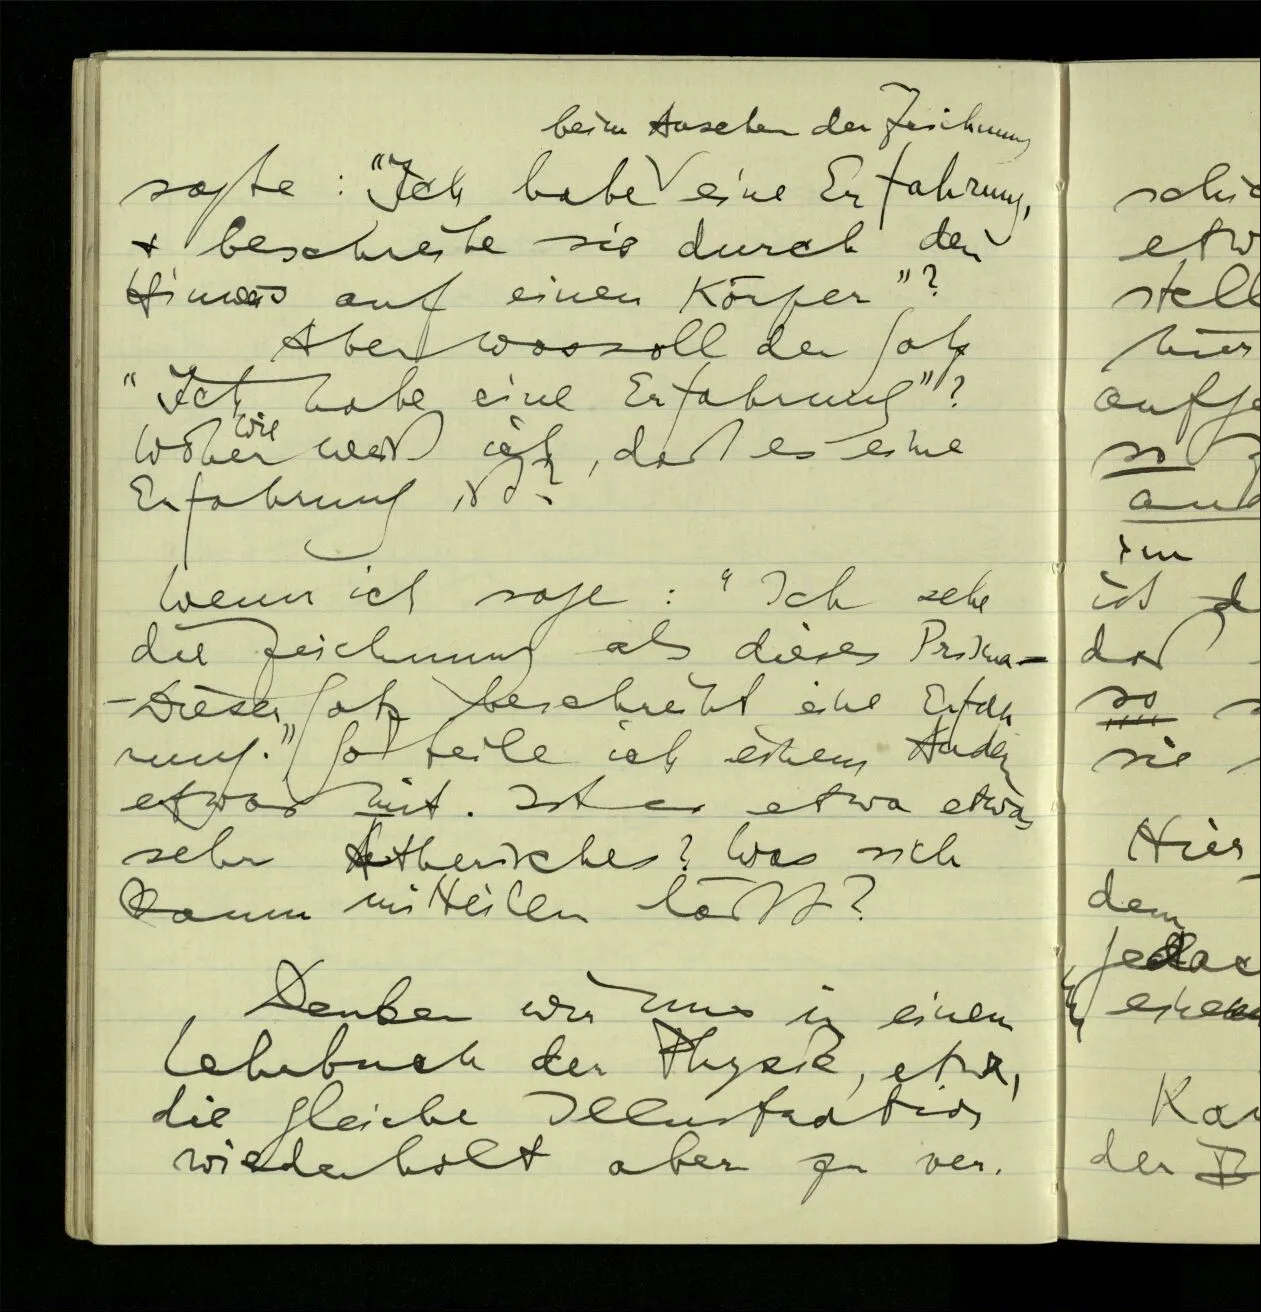 beim Ansehen der Zeichnung
sagte: "Ich habe eine Erfahrung,
+ beschreibe sie durch den
Hinweis auf einen Körper"?
Aber was soll der Satz
"Ich habe eine Erfahrung"?
wie
Woher weiß ich, daß es eine
Erfahrung ist?
Wenn ich sage: "Ich sehe
die Zeichnung als dieses Prisma –
– Dieser Satz beschreibt eine Erfah
rung." So teile ich einem Andern
etwas mit. Ist es etwa etwas
sehr Ätherisches? Was sich
kaum mitteilen läßt?
Denken wir uns in einem
Lehrbuch der Physik, etwa,
die gleiche Illustration
wiederholt aber zu ver.
schie
etw
stell
hier
aufge
so
and
im
ist d
daß
so
sie
Hier
dem
jedoc
einem
Kan
der